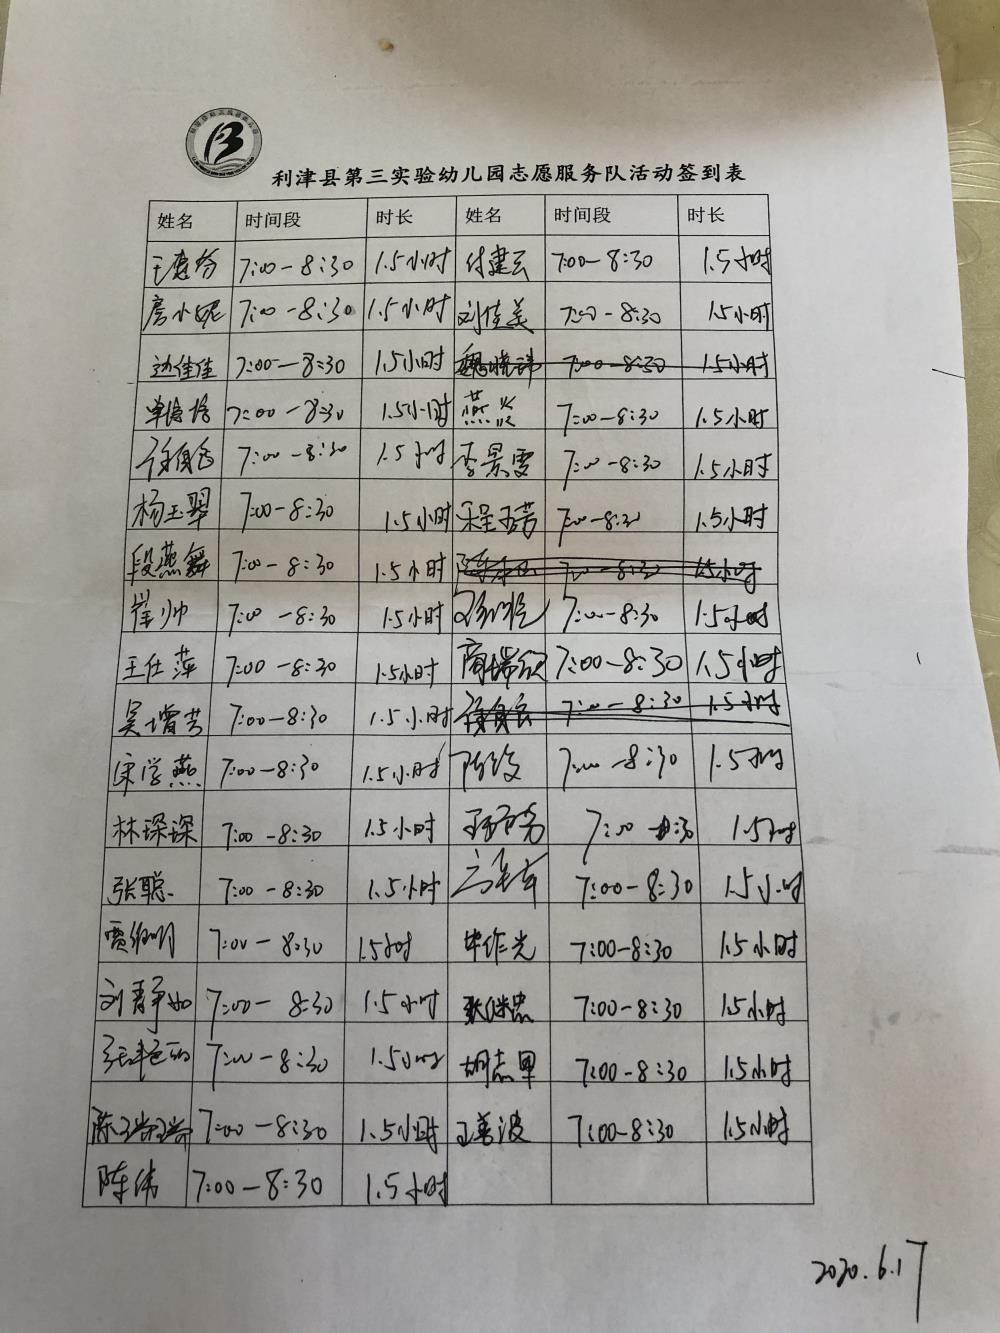 利津县第三实验幼儿园志愿服务队活动签到表
姓名 时间段 时长 姓名 时间段 时长
7:00-8:30 1.5小时 付建云 7:00-8:30 1.5小时
7:00-8:30 1.5小时 刘佳美 7:00-8:30 1.5小时
边佳佳 7:00-8:30 1.5小时 7:00-8:30 1.5小时
7:00-8:30 1.5小时 7:00-8:30 1.5小时
7:00-8:30 1.5小时 李景雯 7:00-8:30 1.5小时
杨玉翠 7:00-8:30 1.5小时 7:00-8:30 1.5小时
段燕舞 7:00-8:30 1.5小时 7:00-8:30 1.5小时
崔帅 7:00-8:30 1.5小时 7:00-8:30 1.5小时
王仕萍 7:00-8:30 1.5小时 商瑞欣 7:00-8:30 1.5小时
吴增芳 7:00-8:30 1.5小时 7:00-8:30 1.5小时
宋学燕 7:00-8:30 1.5小时 7:00-8:30 1.5小时
林琛琛 7:00-8:30 1.5小时 7:00-8:30 1.5小时
张聪 7:00-8:30 1.5小时 7:00-8:30 1.5小时
贾朝明 7:00-8:30 1.5小时 毕作光 7:00-8:30 1.5小时
刘静如 7:00-8:30 1.5小时 张继忠 7:00-8:30 1.5小时
7:00-8:30 1.5小时 7:00-8:30 1.5小时
陈瑞瑞 7:00-8:30 1.5小时 王善波 7:00-8:30 1.5小时
陈伟 7:00-8:30 1.5小时
2020.6.17